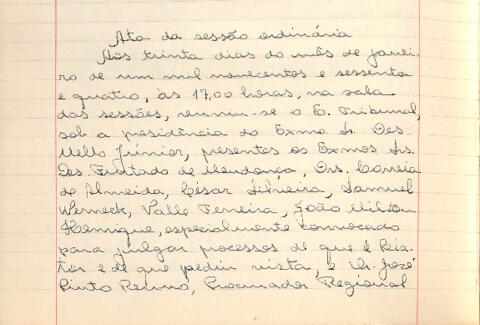 Ata da sessão ordinária
Aos trinta dias do mês de janei-
ro de um mil novecentos e sessenta
e quatro, às 17,00 horas, na sala
das sessões, reuniu-se o E. Tribunal,
sob a presidência do Exmo Sr. Des.
Mello Júnior, presentes os Exmos Srs.
Des. Furtado de Mendonça, Drs. Correia
de Almeida, César Silveira, Samuel
Werneck, Valle Ferreira, João Milton
Henrique, especialmente convocado
para julgar processos de que é Rela-
tor e de que pediu vista, e Dr. José
Pinto Rennó, Procurador Regional